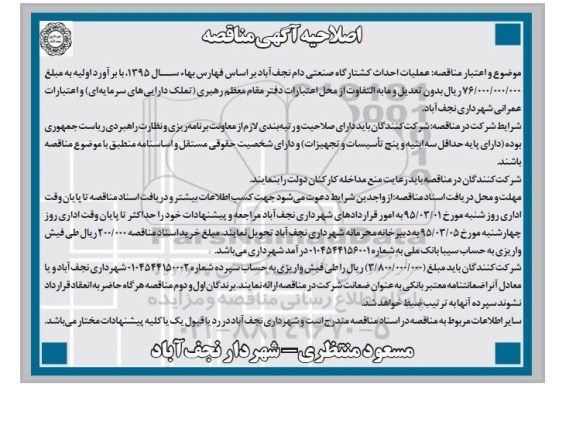 اصلاحیه آگهی مناقصه
موضوع و اعتبار مناقصه: عملیات احداث کشتارگاه صنعتی دام نجف آباد بر اساس فهارس بهاء سال ۱۳۹۵، با بر آورد اولیه به مبلغ
۷۶/۰۰۰/۰۰۰/۰۰۰ ریال بدون تعدیل و مابه التفاوت از محل اعتبارات دفتر مقام معظم رهبری (تملک دارایی های سرمایه ای) و اعتبارات
عمرانی شهرداری نجف آباد.
شرایط شرکت در مناقصه: شرکت کنندگان باید دارای صلاحیت و رتبه بندی لازم از معاونت برنامه ریزی و نظارت راهبردی ریاست جمهوری
بوده (دارای پایه حداقل سه ابنیه و پنج تأسیسات و تجهیزات) و دارای شخصیت حقوقی مستقل و اساسنامه منطبق با موضوع مناقصه
باشند.
شرکت کنندگان در مناقصه باید رعایت منع مداخله کارکنان دولت را بنمایند.
مهلت و محل دریافت اسناد مناقصه: از واجدین شرایط دعوت می شود جهت کسب اطلاعات بیشتر و دریافت اسناد مناقصه تا پایان وقت
اداری روز شنبه مورخ ۹۵/۰۳/۰۱ به امور قراردادهای شهرداری نجف آباد مراجعه و پیشنهادات خود را حداکثر تا پایان وقت اداری روز
چهارشنبه مورخ ۹۵/۰۳/۰۵ به دبیرخانه محرمانه شهرداری نجف آباد تحویل نمایند. مبلغ خرید اسناد مناقصه ۲۰۰/۰۰۰ ریال طی فیش
واریزی به حساب سیبا بانک ملی به شماره ۰۱۰۴۵۴۴۱۵۶۰۰۱ در آمد شهرداری می باشد.
شرکت کنندگان باید مبلغ (۳/۸۰۰/۰۰۰/۰۰۰) ریال را طی فیش واریزی به حساب سپرده شماره ۰۱۰۴۵۴۴۱۵۰۰۰۲ شهرداری نجف آباد و یا
معادل آن ضمانتنامه معتبر بانکی به عنوان ضمانت شرکت در مناقصه ارائه نمایند. برندگان اول و دوم مناقصه هر گاه حاضر به انعقاد قرارداد
نشوند سپرده آنها به ترتیب ضبط خواهد شد.
سایر اطلاعات مربوط به مناقصه در اسناد مناقصه مندرج است و شهرداری نجف آباد در رد یا قبول یک یا کلیه پیشنهادات مختار می باشد.
مسعود منتظری – شهردار نجف آباد